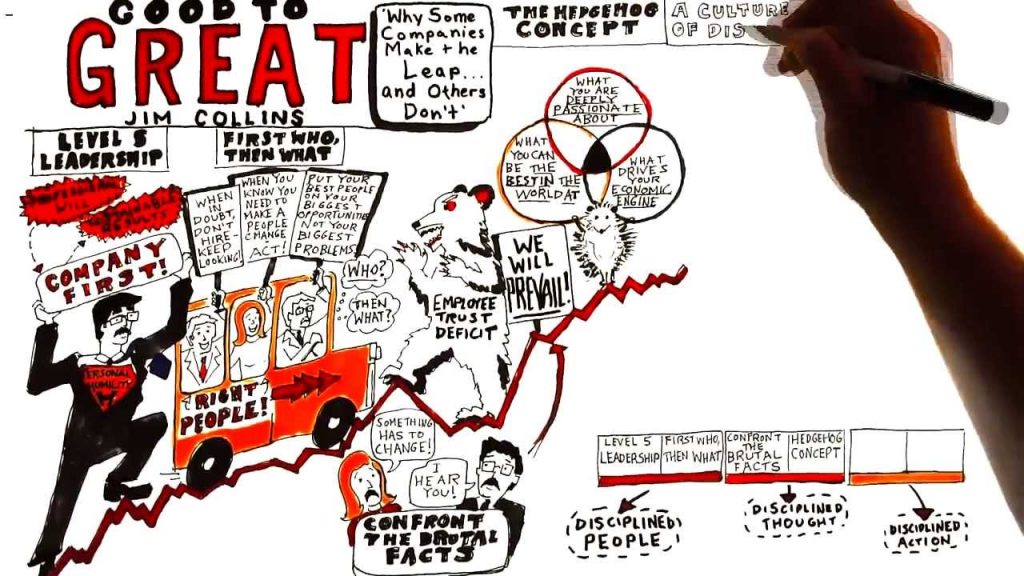 GOOD TO
GREAT
JIM COLLINS
'Why Some
Companies
Make the
Leap...
and Others
Don't'
THE HEDGEHOG
CONCEPT
A CULTURE
OF DIS
LEVEL 5
LEADERSHIP
FIRST WHO,
THEN WHAT
WILL
RESULTS
COMPANY
FIRST!
PERSONAL
HUMILITY
WHEN
IN
DOUBT,
DON'T
HIRE-
KEEP
LOOKING!
WHEN YOU
KNOW YOU
NEED TO
MAKE A
PEOPLE
CHANGE
ACT!
PUT YOUR
BEST PEOPLE
ON YOUR
BIGGEST
OPPORTUNITIES
NOT YOUR
BIGGEST
PROBLEMS
RIGHT
PEOPLE!
WHO?
THEN
WHAT?
EMPLOYEE
TRUST
DEFICIT
SOMETHING
HAS TO
CHANGE!
I
HEAR
YOU!
CONFRONT
THE BRUTAL
FACTS
WE
WILL
PREVAIL!
WHAT
YOU ARE
DEEPLY
PASSIONATE
ABOUT
WHAT
YOU CAN
BE THE
BEST IN THE
WORLD AT
WHAT
DRIVES
YOUR
ECONOMIC
ENGINE
LEVEL 5
LEADERSHIP
FIRST WHO,
THEN WHAT
CONFRONT
THE
BRUTAL
FACTS
HEDGEHOG
CONCEPT
DISCIPLINED
PEOPLE
DISCIPLINED
THOUGHT
DISCIPLINED
ACTION